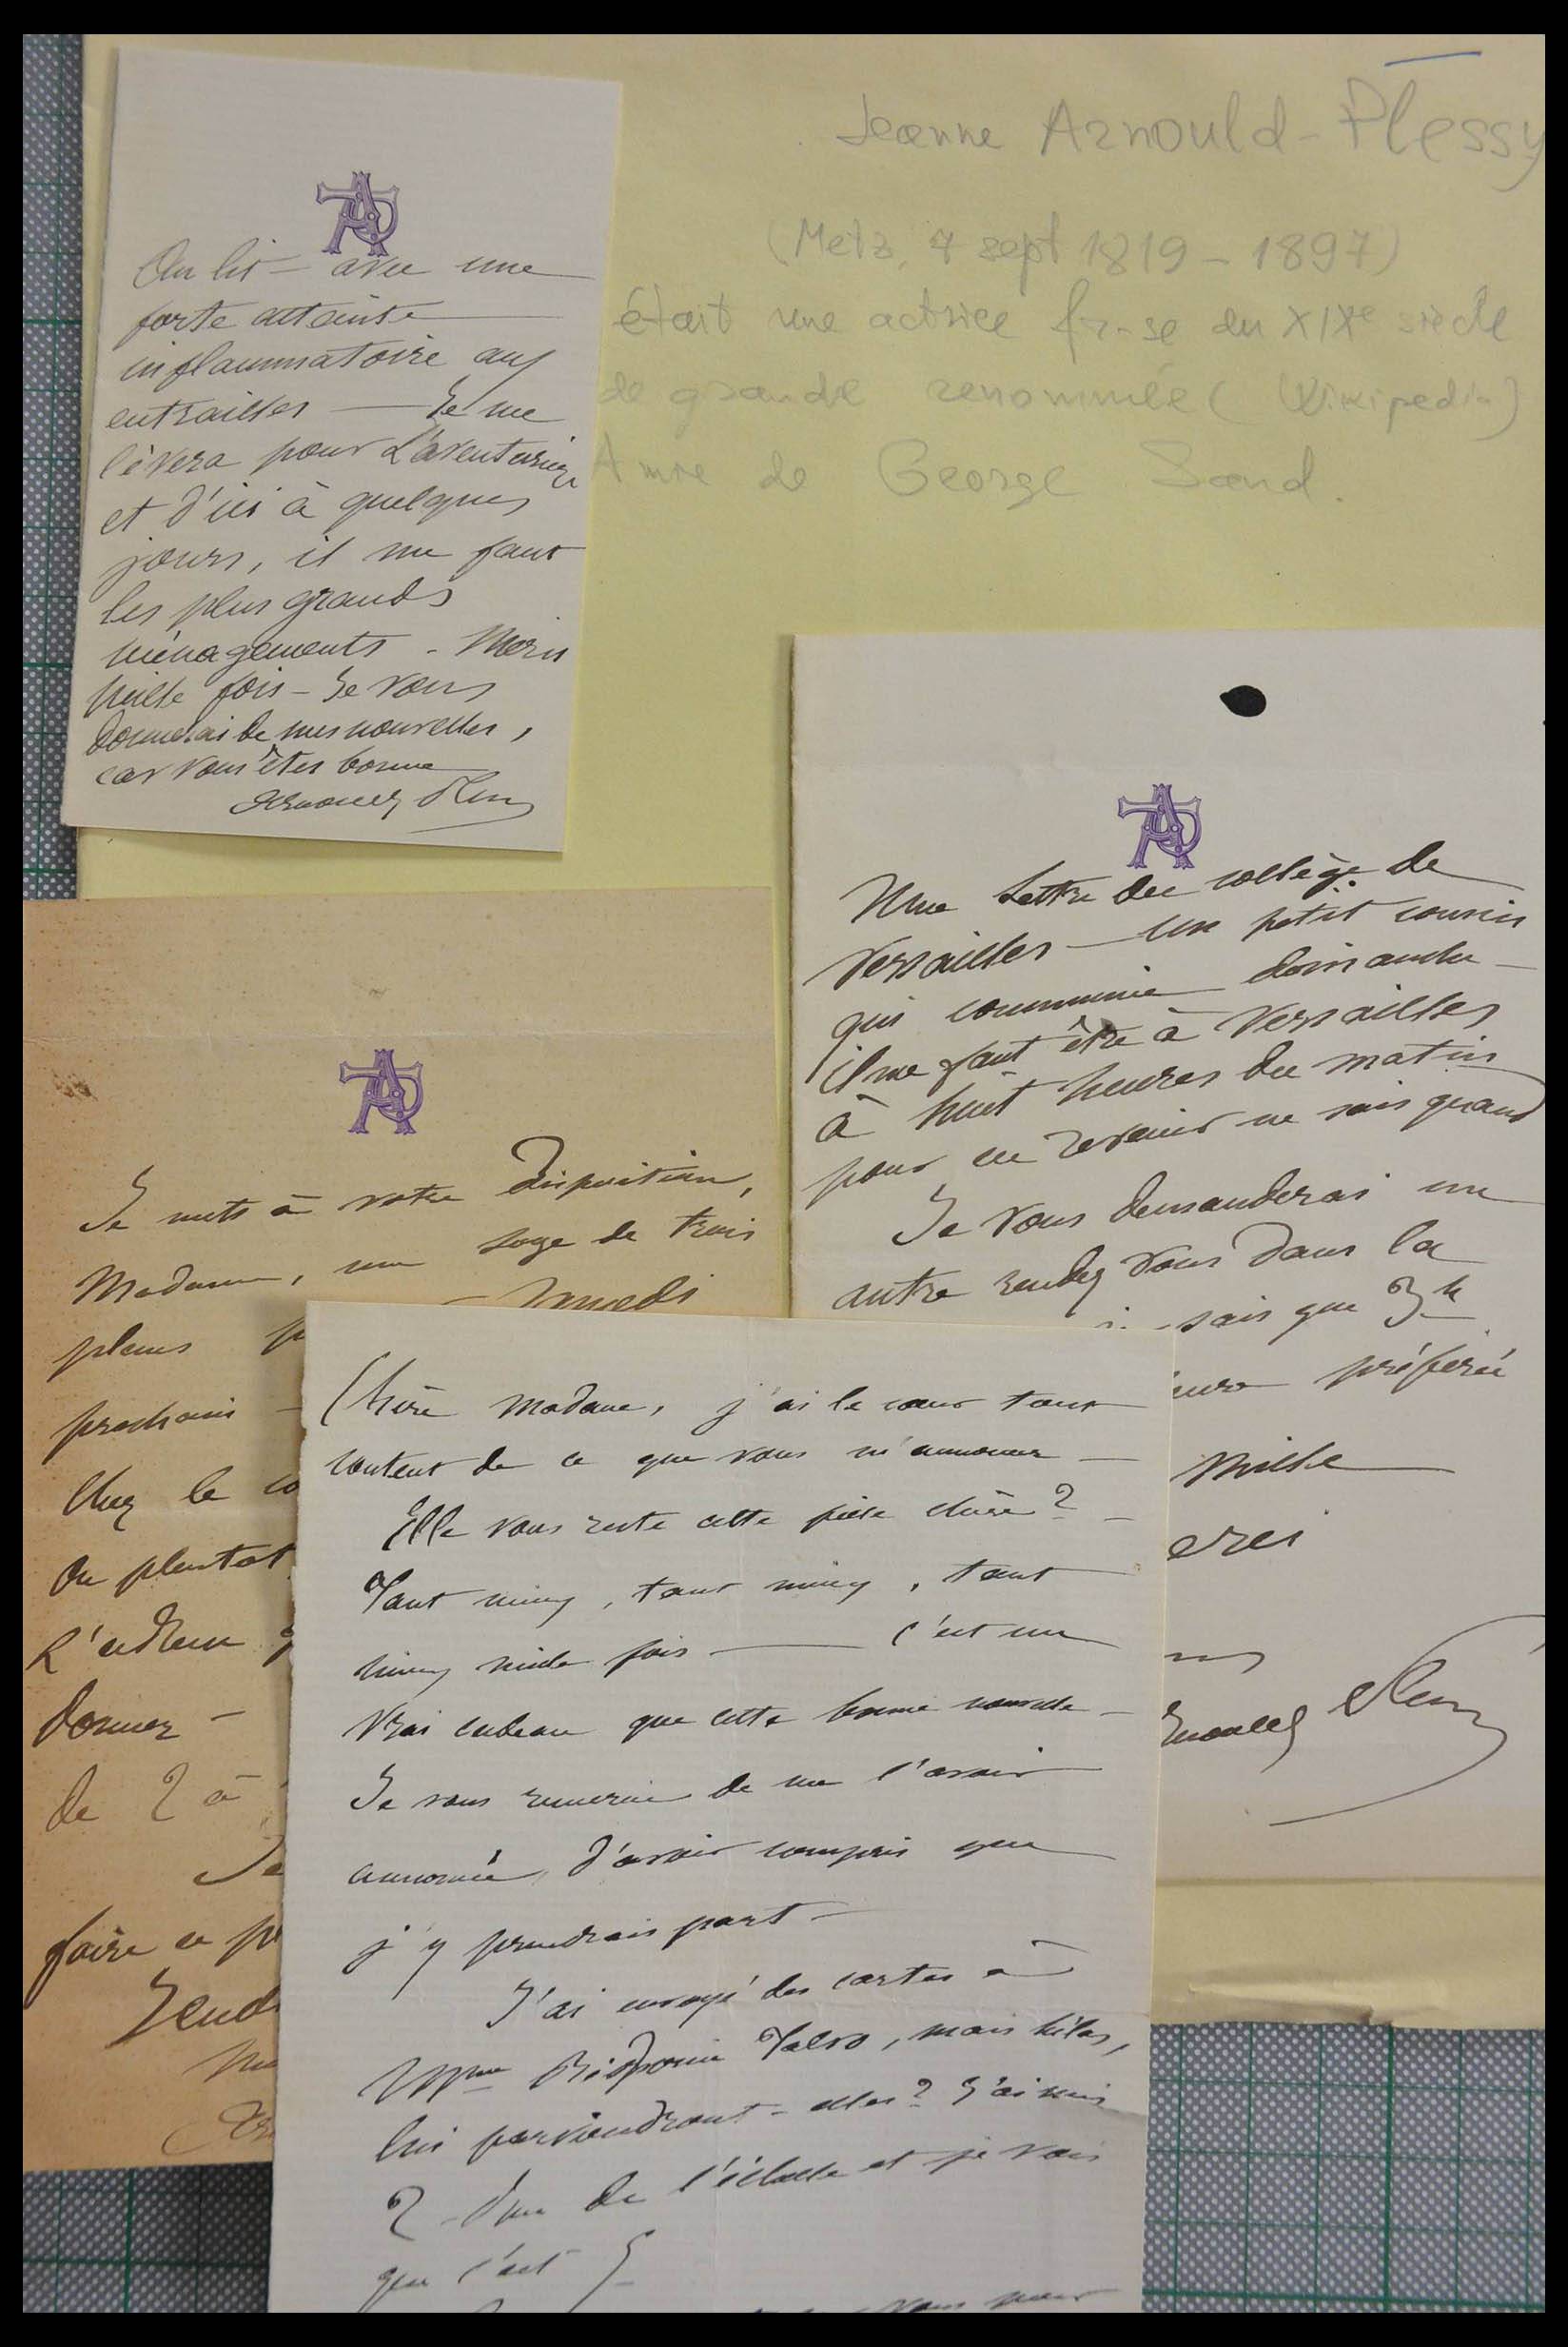 Jeanne Arnould-Plessy
(Metz, 7 sept 1819 - 1897)
était une actrice fr-se du XIXe siècle
de grande renommée (Wikipedia)
Amie de George Sand.
Au lit - avec une
forte atteinte
inflammatoire aux
entrailles — Je me
lèvera pour L'aventurière
et d'ici à quelques
jours, il me faut
les plus grands
ménagements - Merci
mille fois - Je vous
donnerai de mes nouvelles,
car vous êtes bonne
Arnould Plessy
Une lettre du collège de
Versailles — un petit cousin
qui communie dimanche -
il me faut être à Versailles
à huit heures du matin
pour en revenir ne sais quand
Je vous demanderai un
autre rendez vous dans la
sais que 3h
préférée
mille
erci
Je mets à votre disposition,
Madame, une loge de trois
places
- samedi
prochain -
Chez le co
Ou plutot
L'adresse
donner -
de 2 à
Je
faire ce
Chère Madame, j'ai le cœur tout
content de ce que vous m'annoncez —
Elle vous reste cette fille chère? -
Tant mieux, tant mieux, tant
mieux mille fois — c'est un
vrai cadeau que cette bonne nouvelle -
Je vous remercie de me l'avoir
annoncée, d'avoir compris que
j'y prendrais part -
J'ai envoyé des cartes à
Mme Talvo, mais hélas,
lui parviendront-elles? J'ai mis
2 rue de l'échelle et je vois
que c'est 5
vous pour